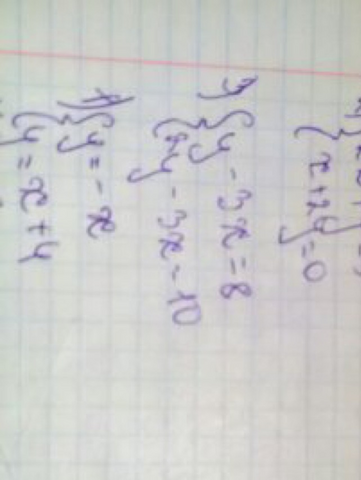 x+2y=0
3) { y - 3x = 8
y - 3x = 10
1) { y = -x
y = x + 4